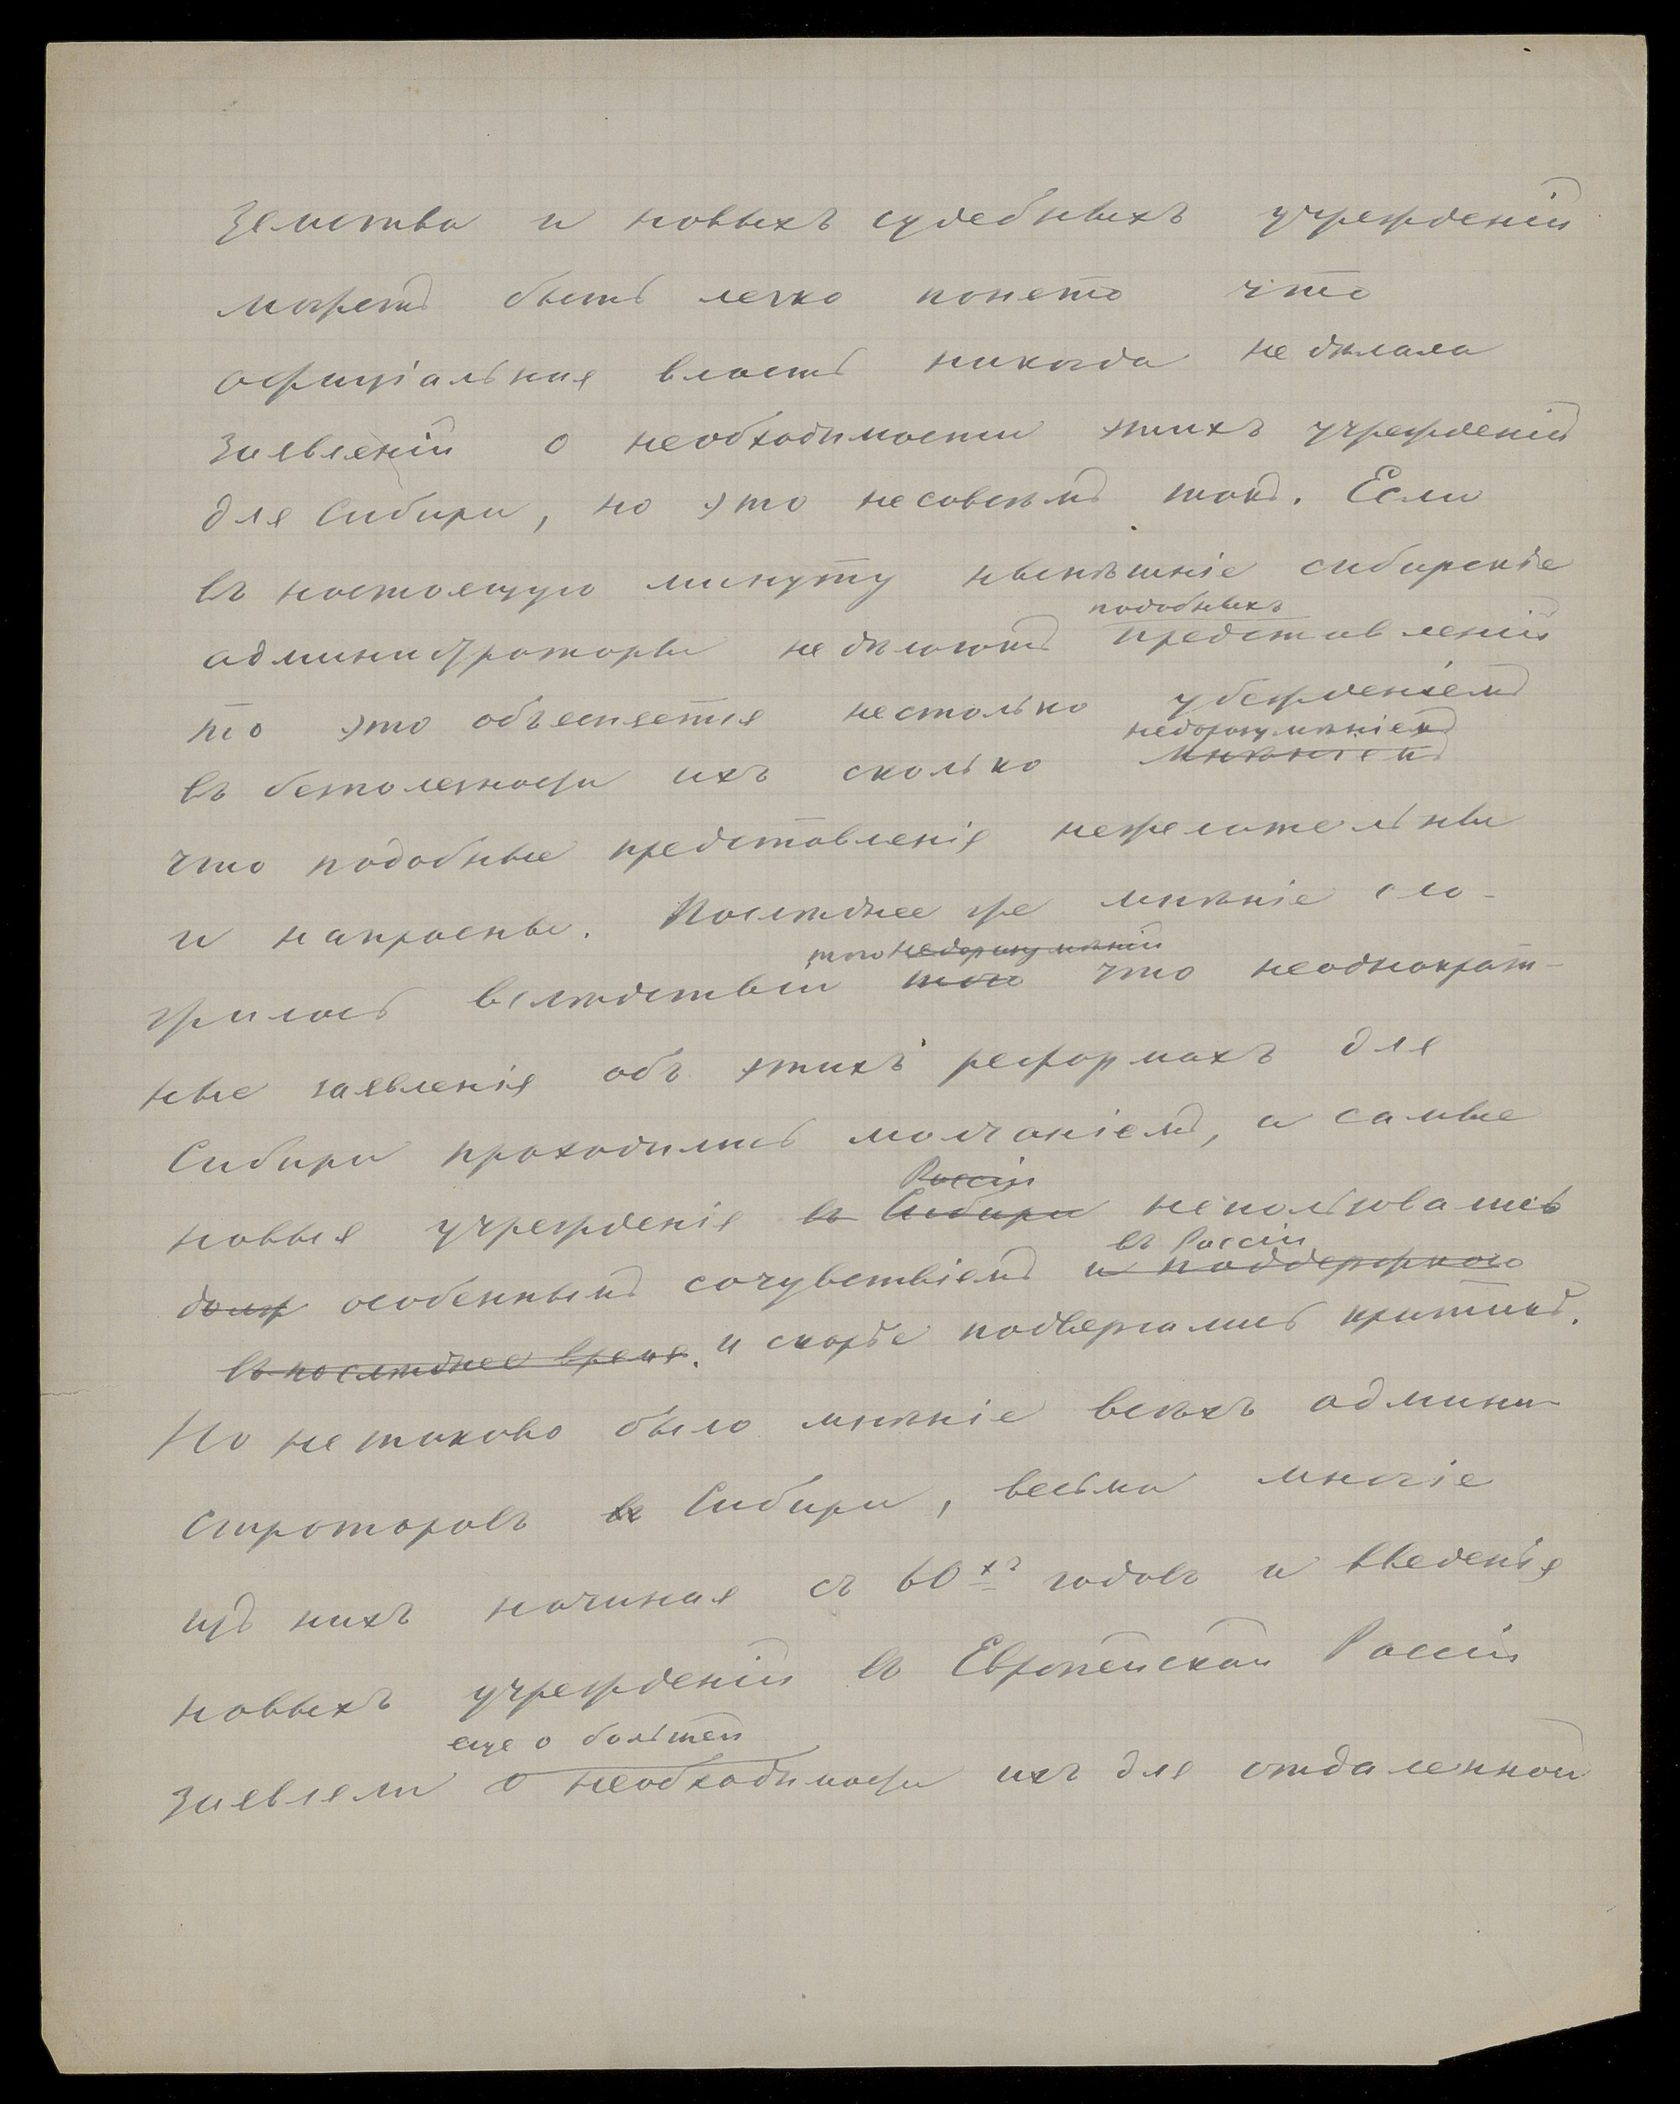 Земства и новыхъ судебныхъ учрежденій
можетъ быть легко понето что
офиціальная власть никогда не дѣлала
заявленій о необходимости этихъ учрежденій
для Сибири, но это несовсѣмъ такъ. Если
въ настоящую минуту нынѣшніе сибирскіе
подобныхъ
администраторы не дѣлаютъ представленій
то это объясняется нестолько убежденіемъ
недоразумѣніемъ
въ безполезности ихъ сколько мнѣніемъ
что подобные представленія нежелательны
и напрасны. Последнее же мнѣніе сло-
того недоразумѣній
жилось вслѣдствіи того что неоднократ-
ные заявленія объ этихъ реформахъ для
Сибири проходились молчаніемъ, а самые
Россіи
новыя учрежденія въ Сибири непользовались
въ Россіи
долж особеннымъ сочувствіемъ и поддержкою
въ послѣднее время. и скорѣе подвергались критикѣ.
Но не таково было мнѣніе всѣхъ админи-
страторовъ въ Сибири, весьма многіе
изъ нихъ начиная съ 60хъ годовъ и введенія
новыхъ учрежденій въ Европейской Россіи
еще о большей
заявляли о необходимости ихъ для отдаленной